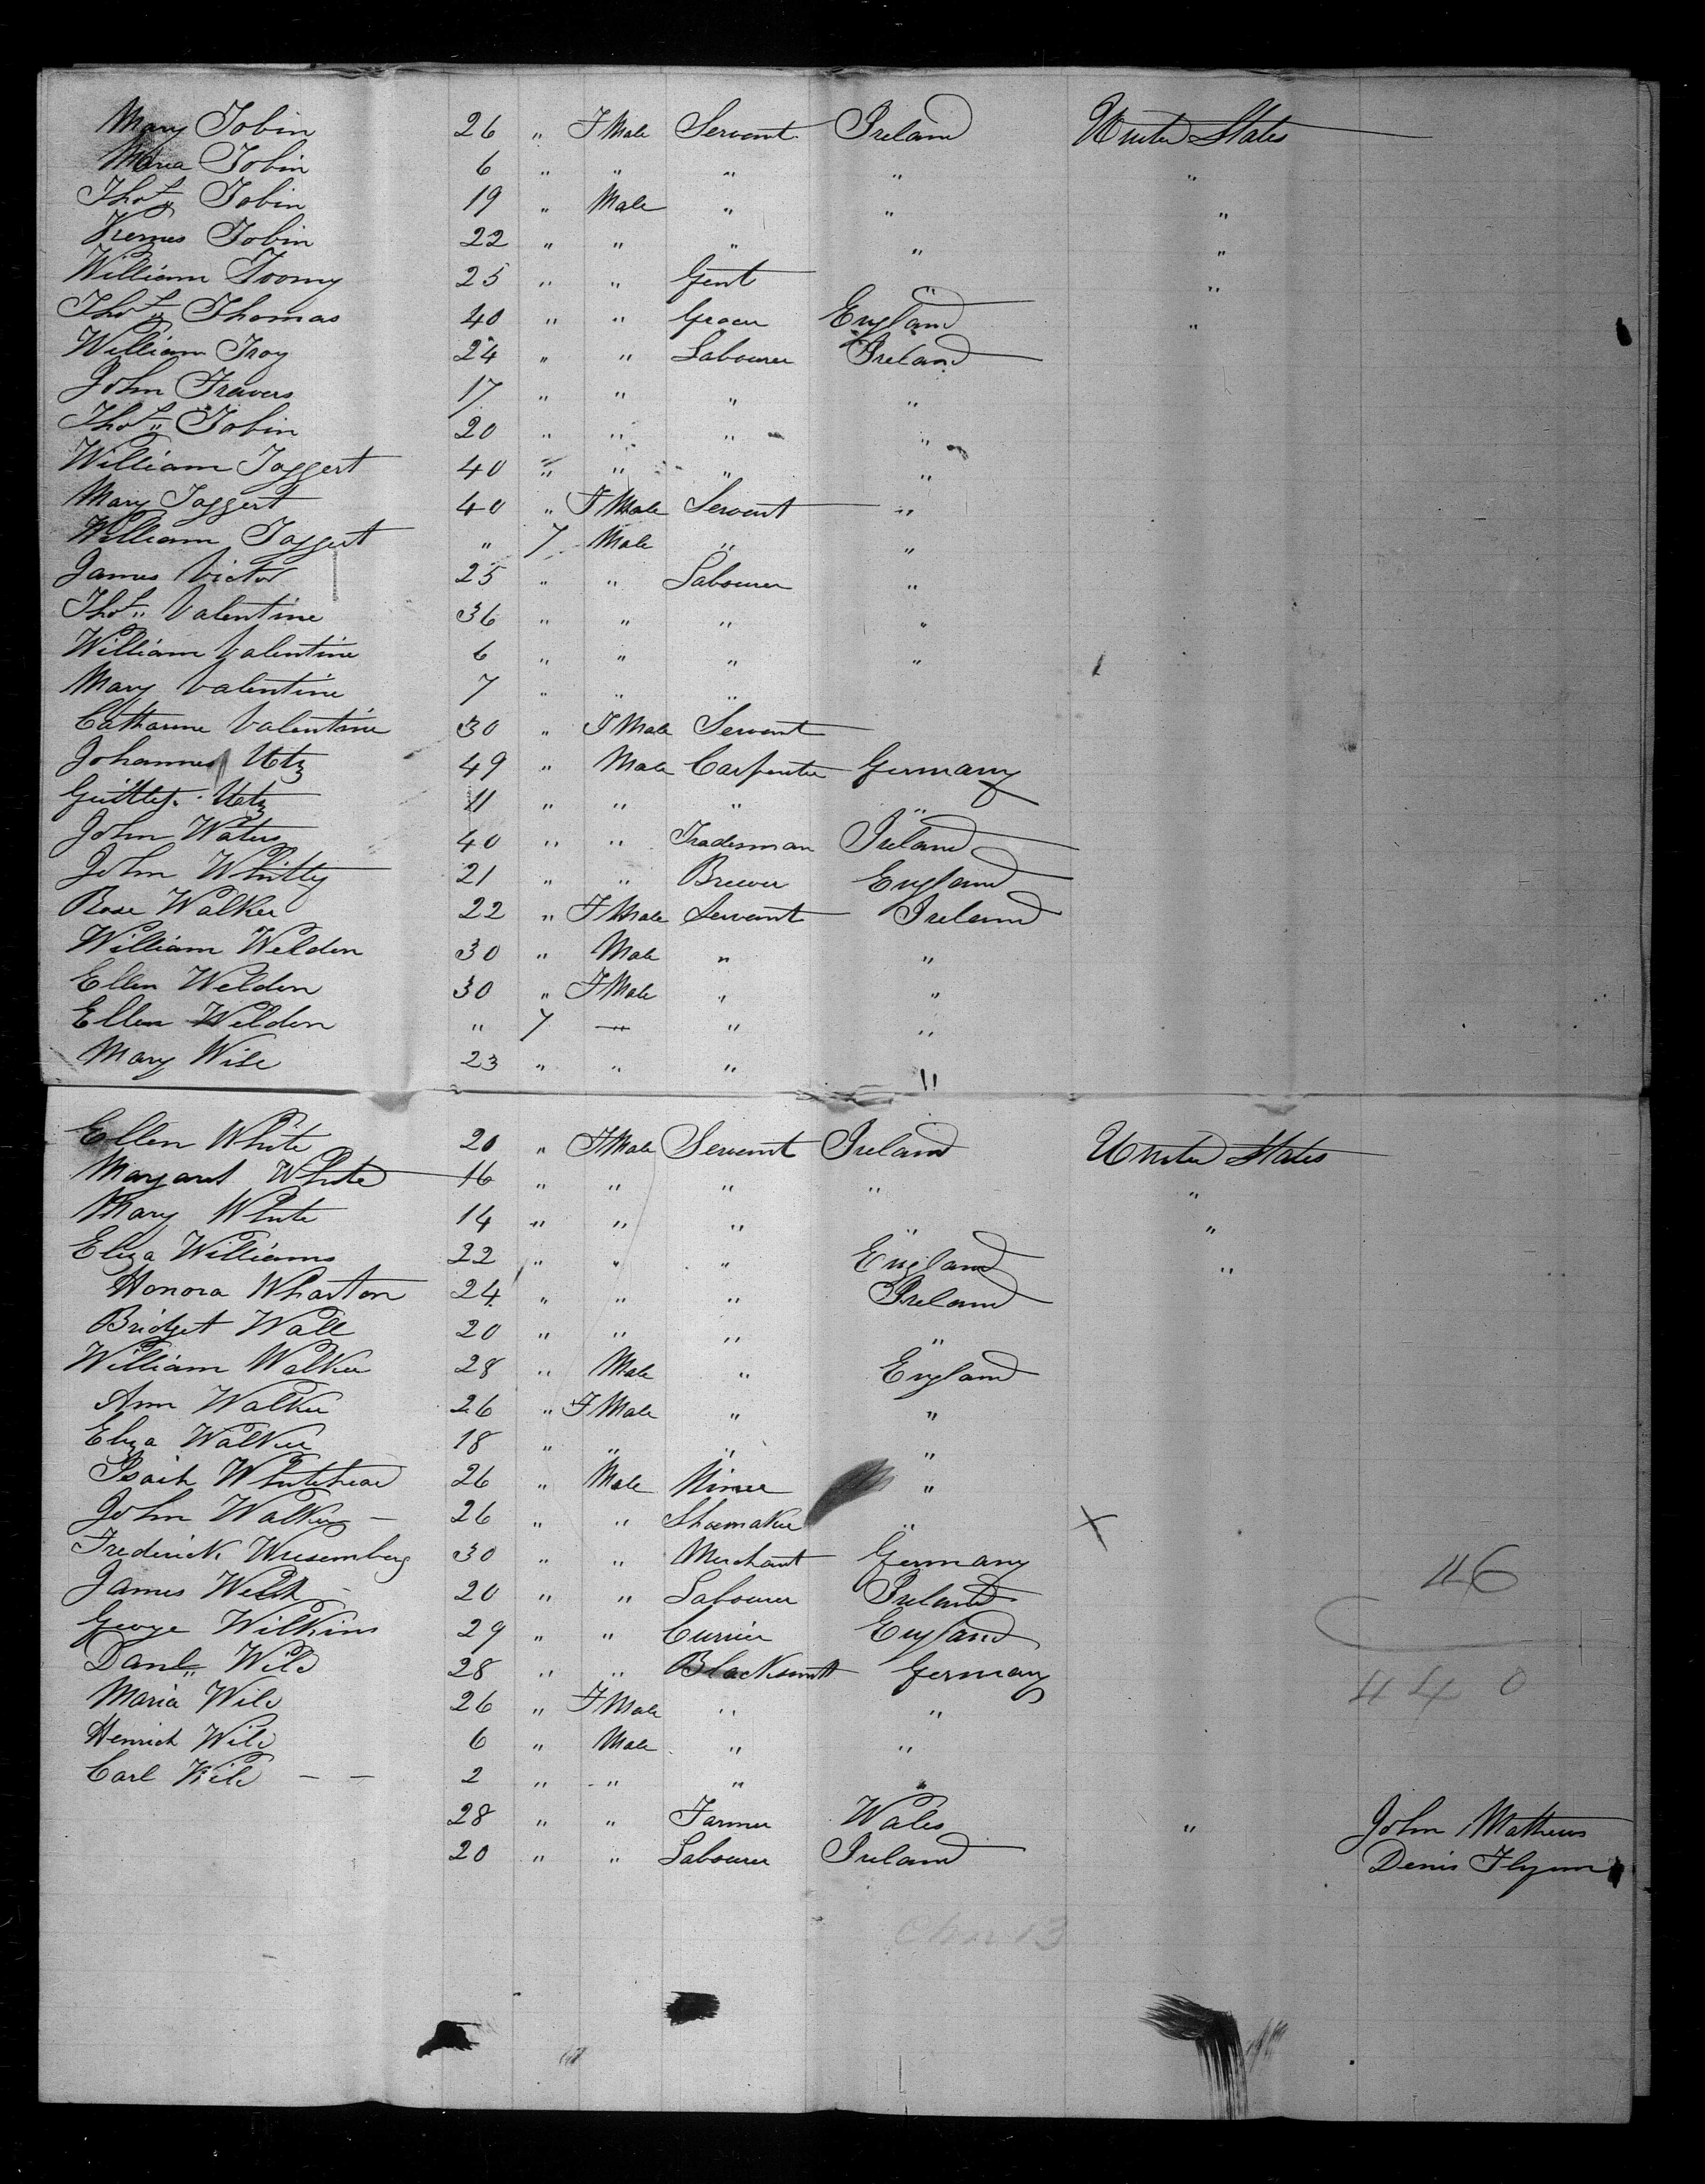 Mary Tobin 26 " F Male Servant Ireland United States
Maria Tobin 6 " " " " "
Thos Tobin 19 " Male " " "
Tobin 22 " " " " "
William Toomy 25 " " Gent " "
Thos Thomas 40 " " Grocer England "
William Troy 24 " " Labourer Ireland
John Travers 17 " " " "
Thos Tobin 20 " " " "
William Taggert 40 " " " "
Mary Taggert 40 " F Male Servant "
William Taggert " 7 Male " "
James Victor 25 " " Labourer "
Thos Valentine 36 " " " "
William Valentine 6 " " " "
Mary Valentine 7 " " "
Catharine Valentine 30 " F Male Servant
Johannes Utz 49 " Male Carpenter Germany
Utz 11 " " " "
John Waters 40 " " Tradesman Ireland
John Whitty 21 " " Brewer England
Rose Walker 22 " F Male Servant Ireland
William Weldon 30 " Male " "
Ellen Weldon 30 " F Male " "
Ellen Weldon " 7 — " "
Mary Wise 23 " " " "
Ellen White 20 " F Male Servant Ireland United States
Margaret White 16 " " " " "
Mary White 14 " " " " "
Eliza Williams 22 " " " England "
Honora Wharton 24 " " " Ireland
Bridget Wall 20 " " " "
William Walker 28 " Male " England
Ann Walker 26 " F Male " "
Eliza Walker 18 " " " "
Isaih Whitehead 26 " Male Miner "
John Walker — 26 " " Shoemaker " X
Frederick Wresemberg 30 " " Merchant Germany
James Welch 20 " " Labourer Ireland
46
George Wilkins 29 " " Currier England
Danl Wild 28 " " Blacksmith Germany
440
Maria Wild 26 " F Male " "
Henrich Wild 6 " Male " "
Carl Wild — — 2 " " " "
28 " " Farmer Wales " John Mathews
20 " " Labourer Ireland Denis Flynn